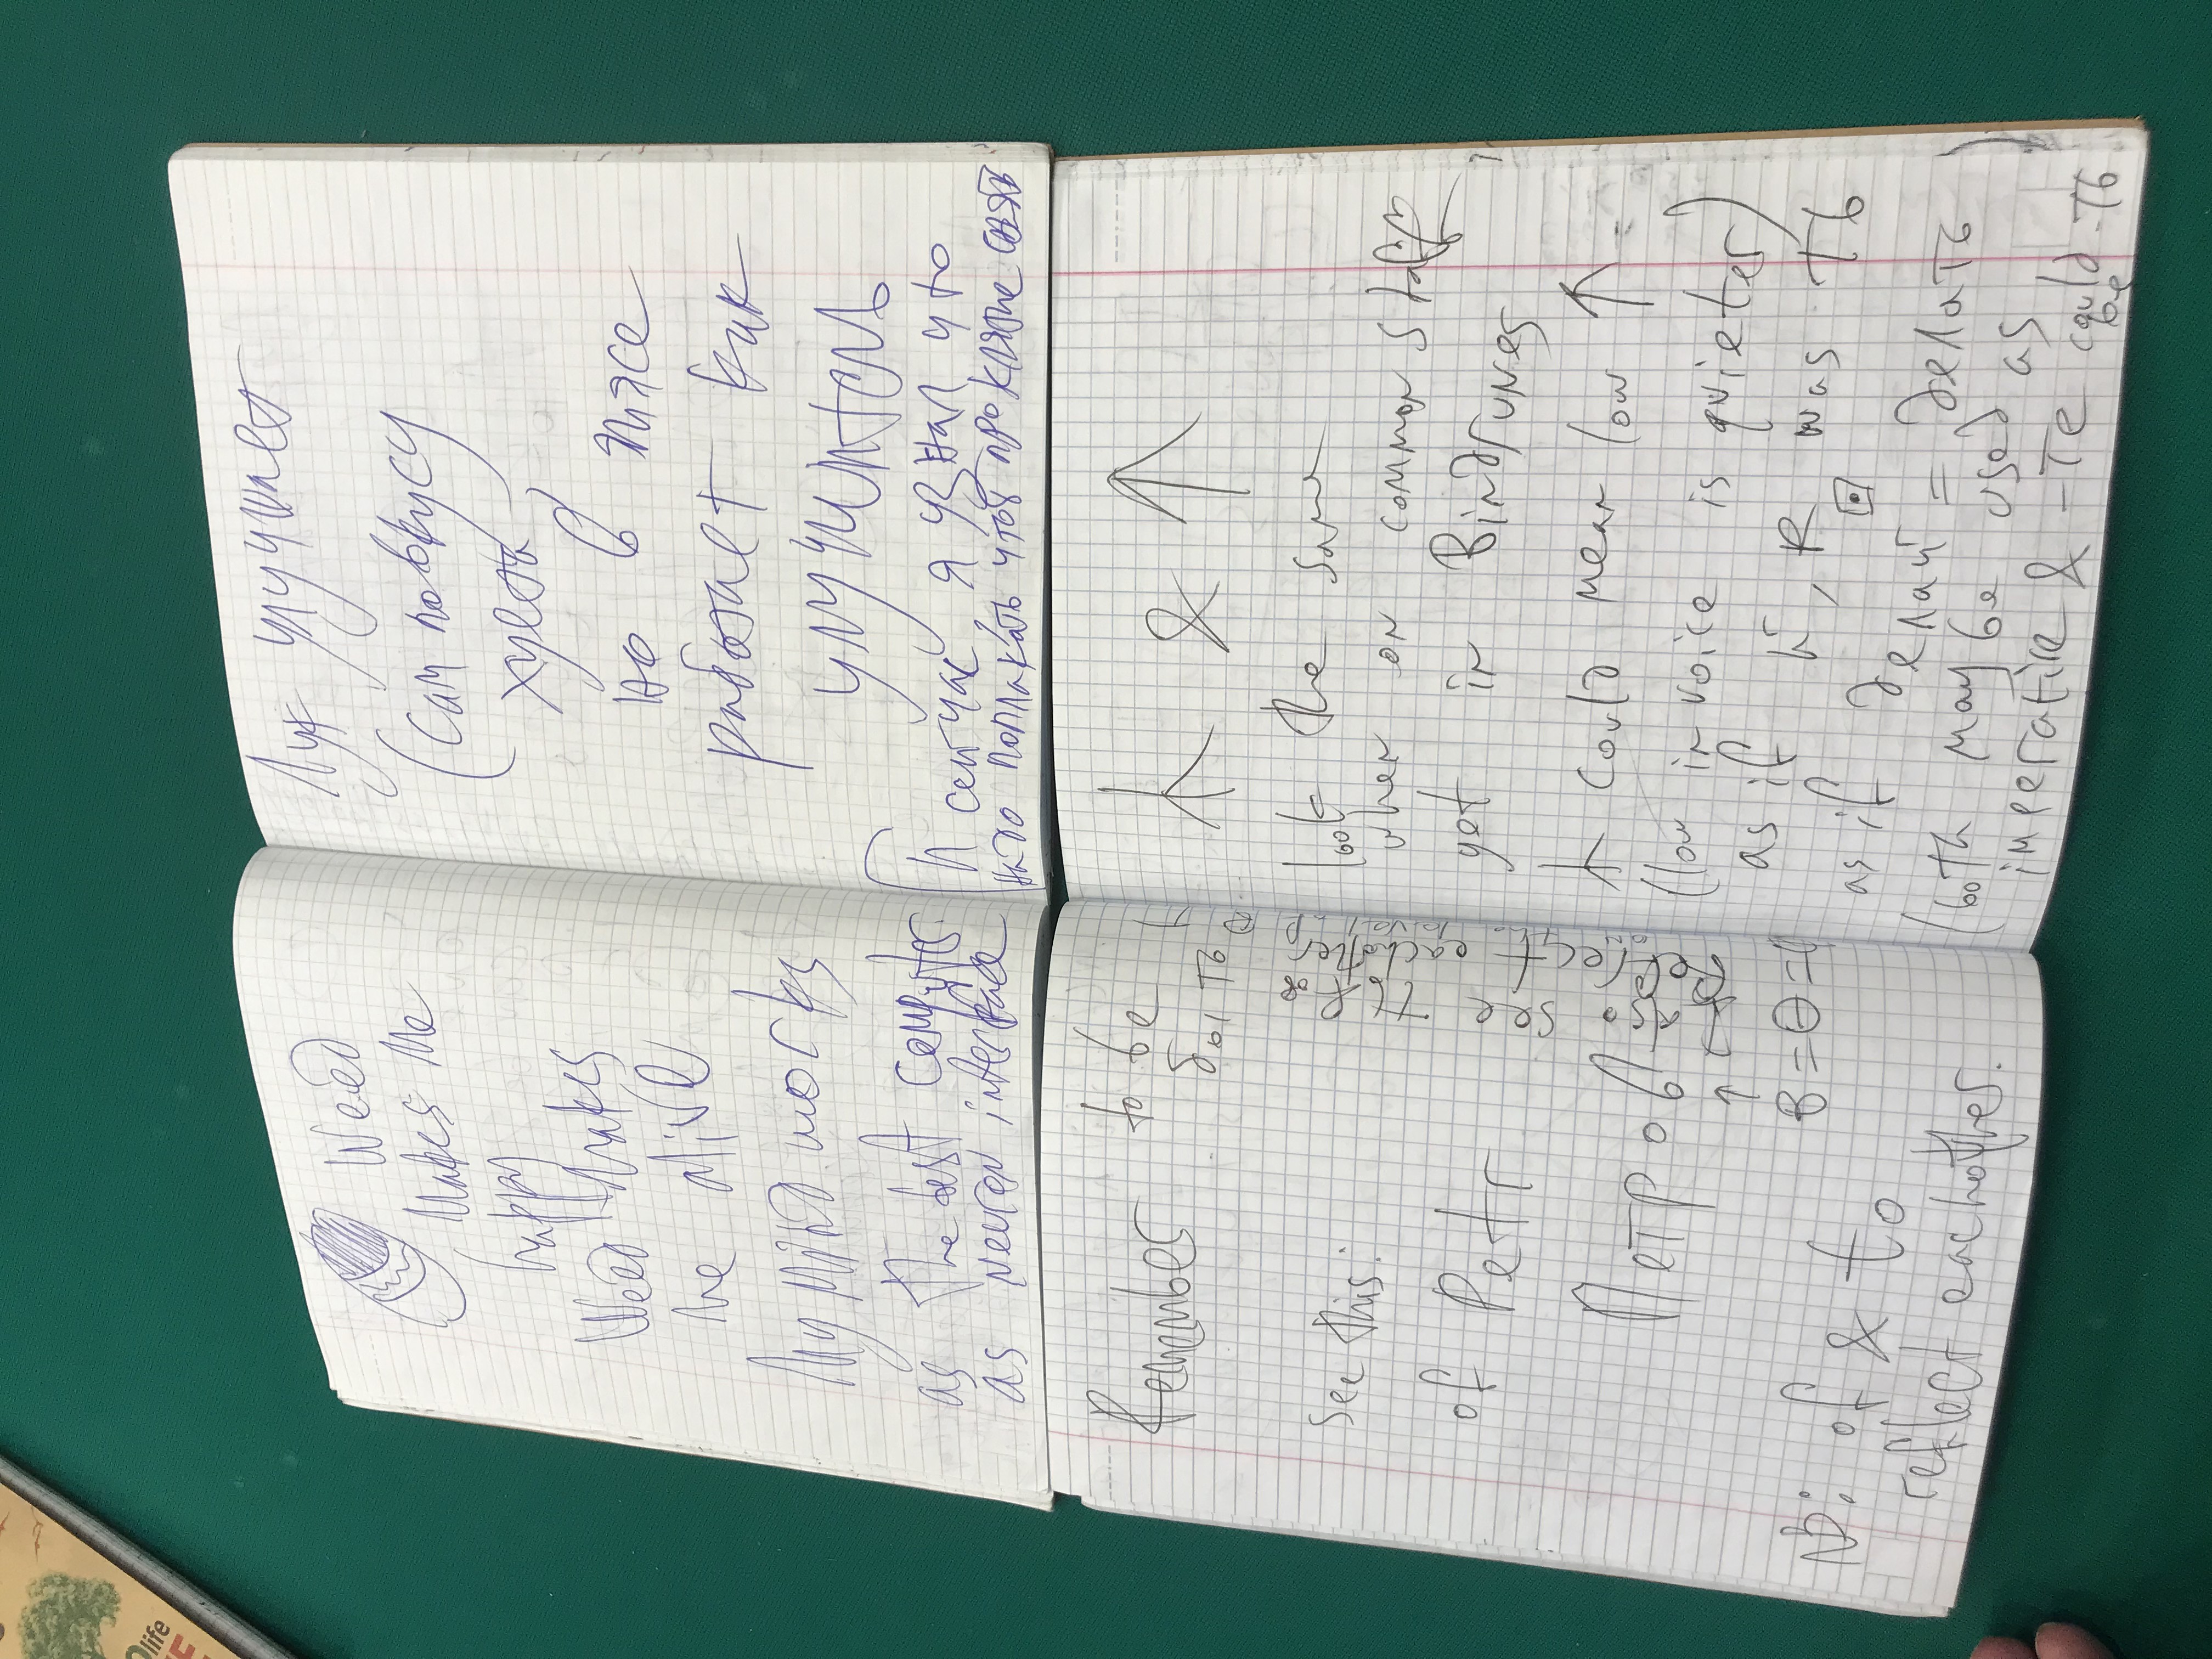 life
Weed
Makes Me
happy
Weed makes
me alive
My Mind works
as the best computer
as neuron interface
Лук улучшает
(Сам по вкусу
хуета,
но в мясе
работает как
улучшитель
И сейчас, я узнал что
надо поплакать чтоб проклятие снять
Remember to be
быть
See this:
of Petr
Петров
↑
B = Θ =
NB: of & to
reflect eachother.
Also see ть & ов
Reflect eachother
&
look the same
when on common staff
yet in Bindrunes
could mean low ↑
(low in voice is quieter)
as if й, R was ть
as if делай = делать
(both may be used as
imperative & -те could be -ть